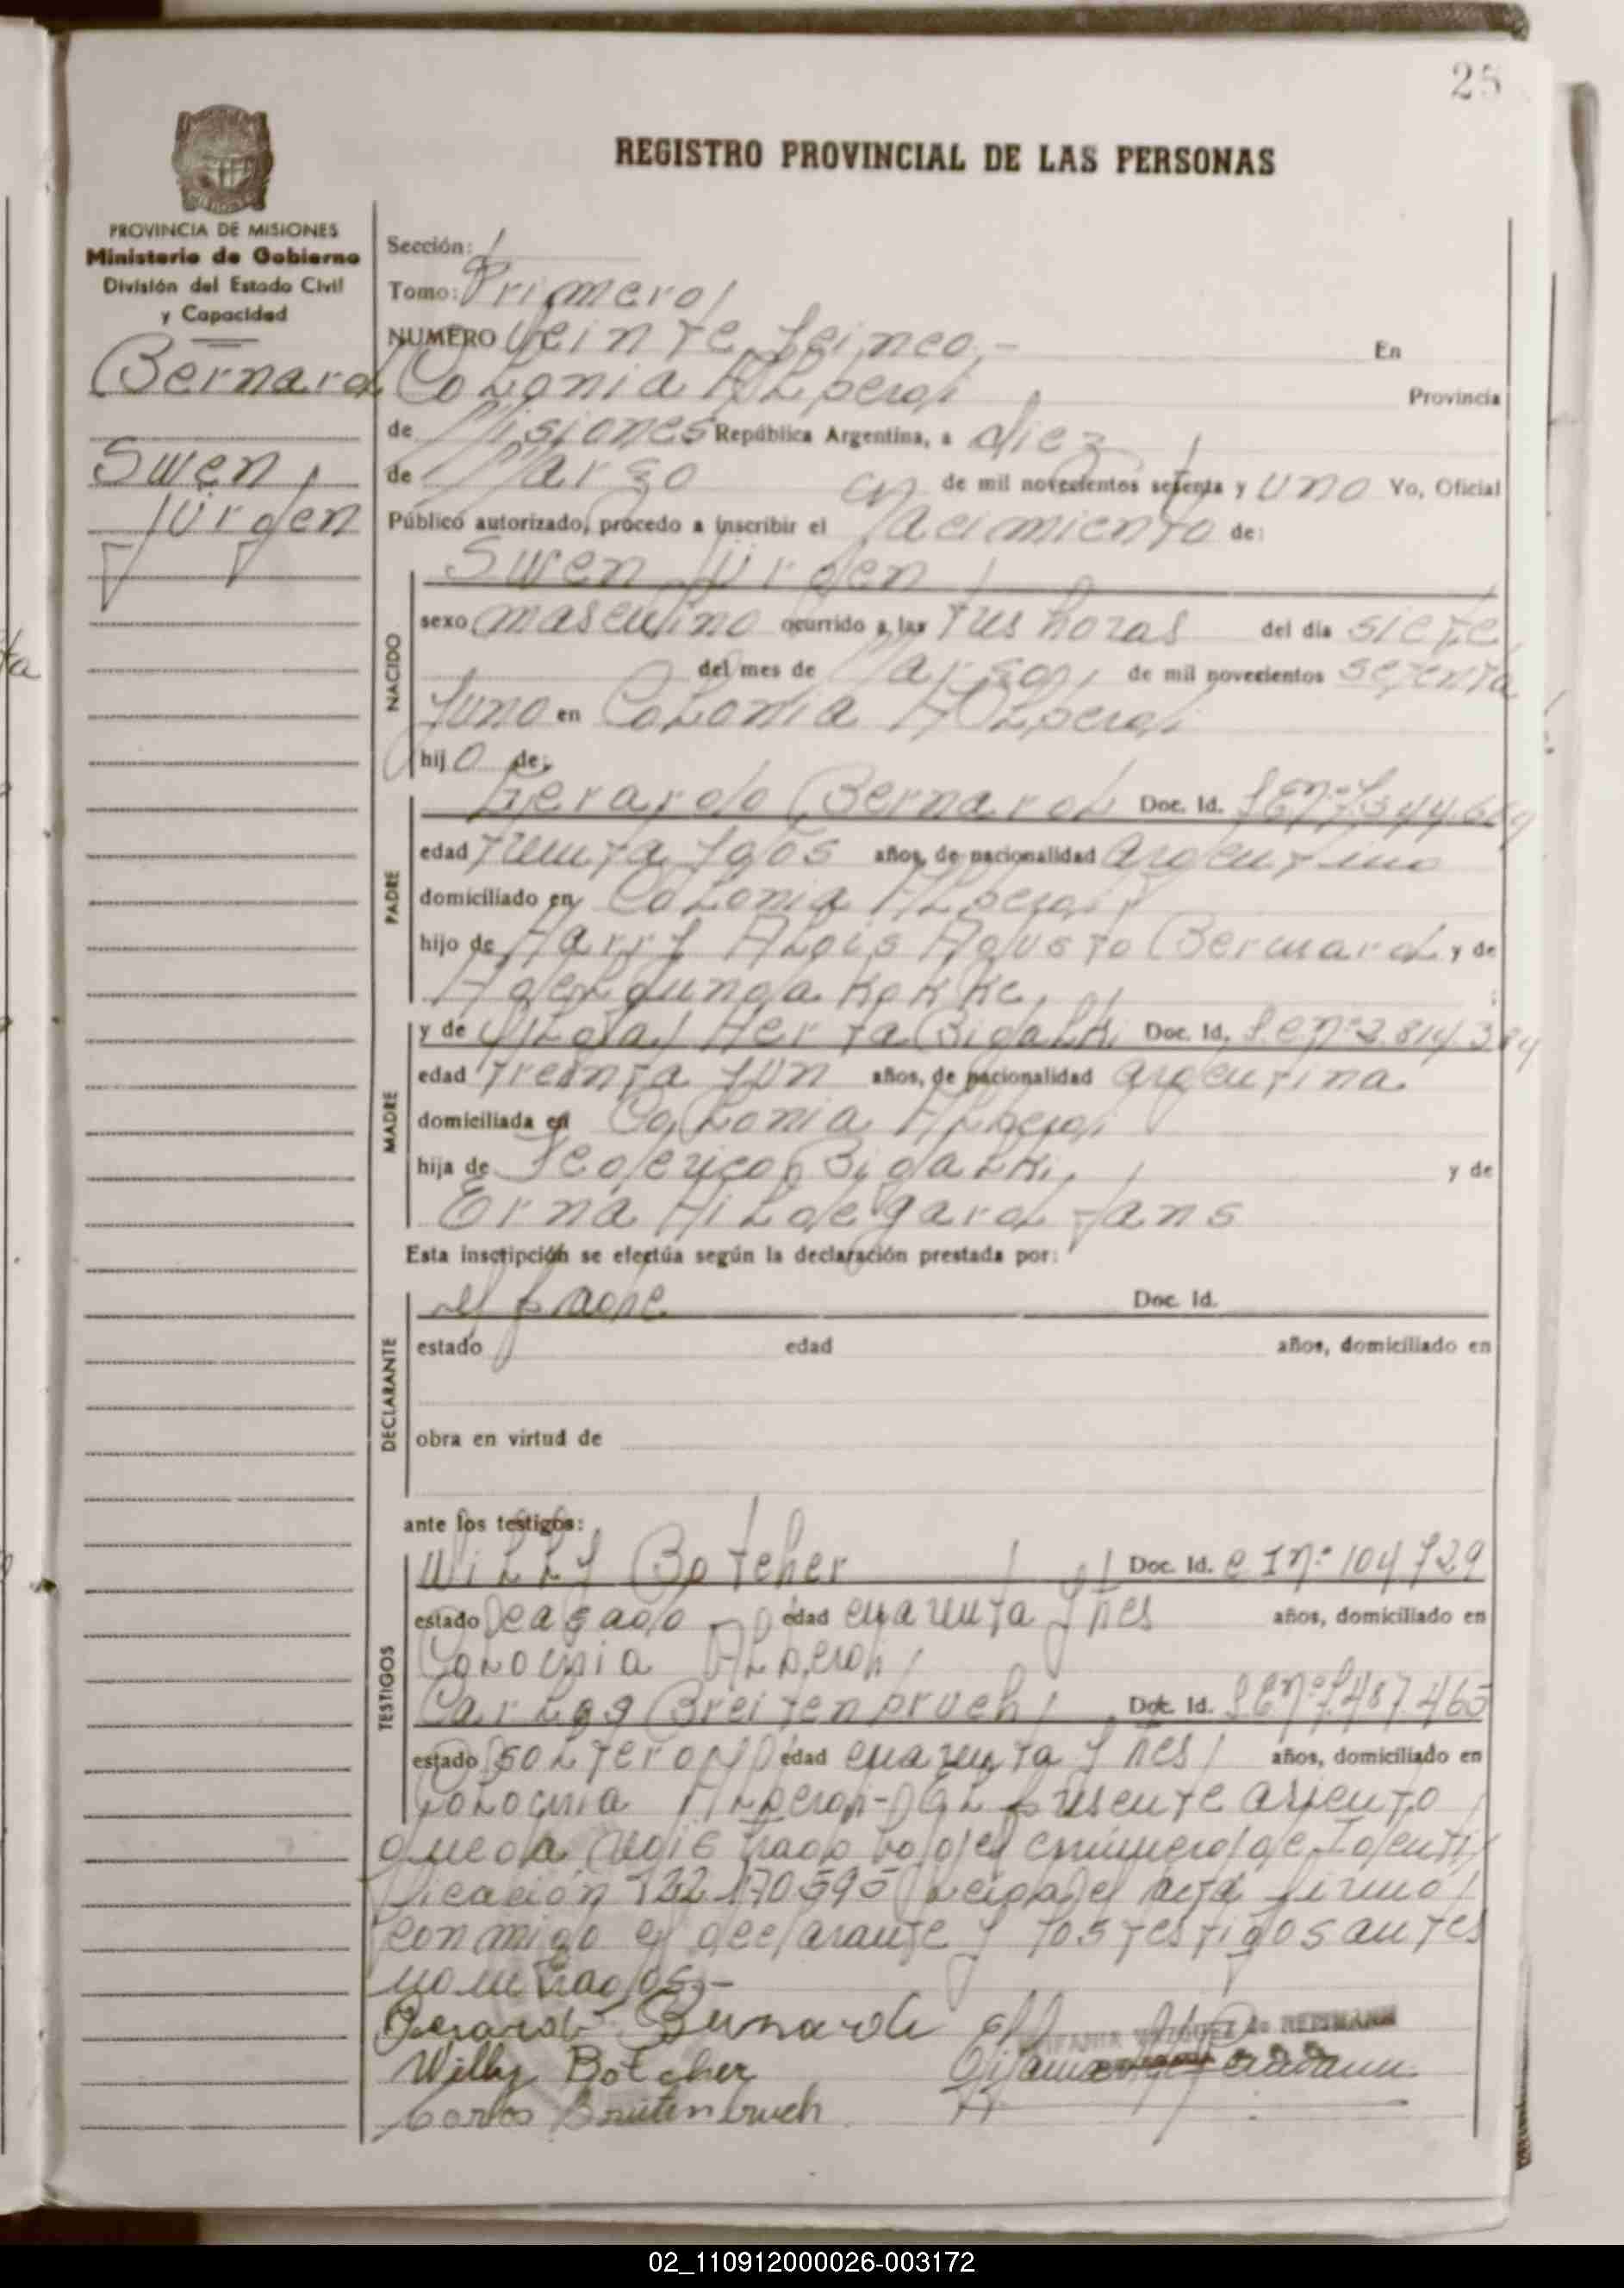 25
REGISTRO PROVINCIAL DE LAS PERSONAS
PROVINCIA DE MISIONES
Ministerio de Gobierno
División del Estado Civil
y Capacidad
Bernard
Swen
Jürgen
Sección:
Tomo: Primero
NUMERO Veinte y cinco.- En
Colonia Alberdi Provincia
de Misiones República Argentina, a diez
de Marzo de mil novecientos setenta y uno Yo, Oficial
Público autorizado, procedo a inscribir el Nacimiento de:
Swen Jürgen
NACIDO
sexo masculino ocurrido a las tres horas del día siete
del mes de Marzo de mil novecientos setenta
y uno en Colonia Alberdi
hijo de:
PADRE
Gerardo Bernard Doc. Id.
edad treinta y dos años, de nacionalidad argentino
domiciliado en Colonia Alberdi
hijo de Harry Alois Agusto Bernard y de
Adelgunda
MADRE
y de Hilda Herta Bigalki Doc. Id.
edad treinta y un años, de nacionalidad argentina.
domiciliada en Colonia Alberdi
hija de Federico Bigalki, y de
Erna Hildegard Jans
Esta inscripción se efectúa según la declaración prestada por:
DECLARANTE
el padre Doc. Id.
estado edad años, domiciliado en
obra en virtud de
ante los testigos:
TESTIGOS
Willy Botcher Doc. Id. C I Nº 104729
estado casado edad cuarenta y tres años, domiciliado en
Colonia Alberdi
Carlos Breitenbruch Doc. Id. L E Nº 7.487.465
estado soltero edad cuarenta y tres años, domiciliado en
Colonia Alberdi- El presente asiento
queda registrado bajo el número de Identi
ficación 22.170.595 Leida el acta firmó
conmigo el declarante y los testigos antes
nombrados.-
Gerardo Bernard
Willy Botcher
Carlos Breitenbruch
02_110912000026-003172